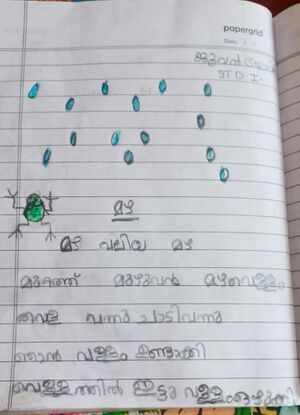 papergrid
Date / /
STD I.
മഴ
മഴ വലിയ മഴ
മുറ്റത്ത് മുഴുവൻ മഴവെള്ളം
തവള വന്നു ചാടിവന്നു
ഞാൻ വള്ളം ഉണ്ടാക്കി
വെള്ളത്തിൽ ഇട്ടു വള്ളംഒഴുക്കി